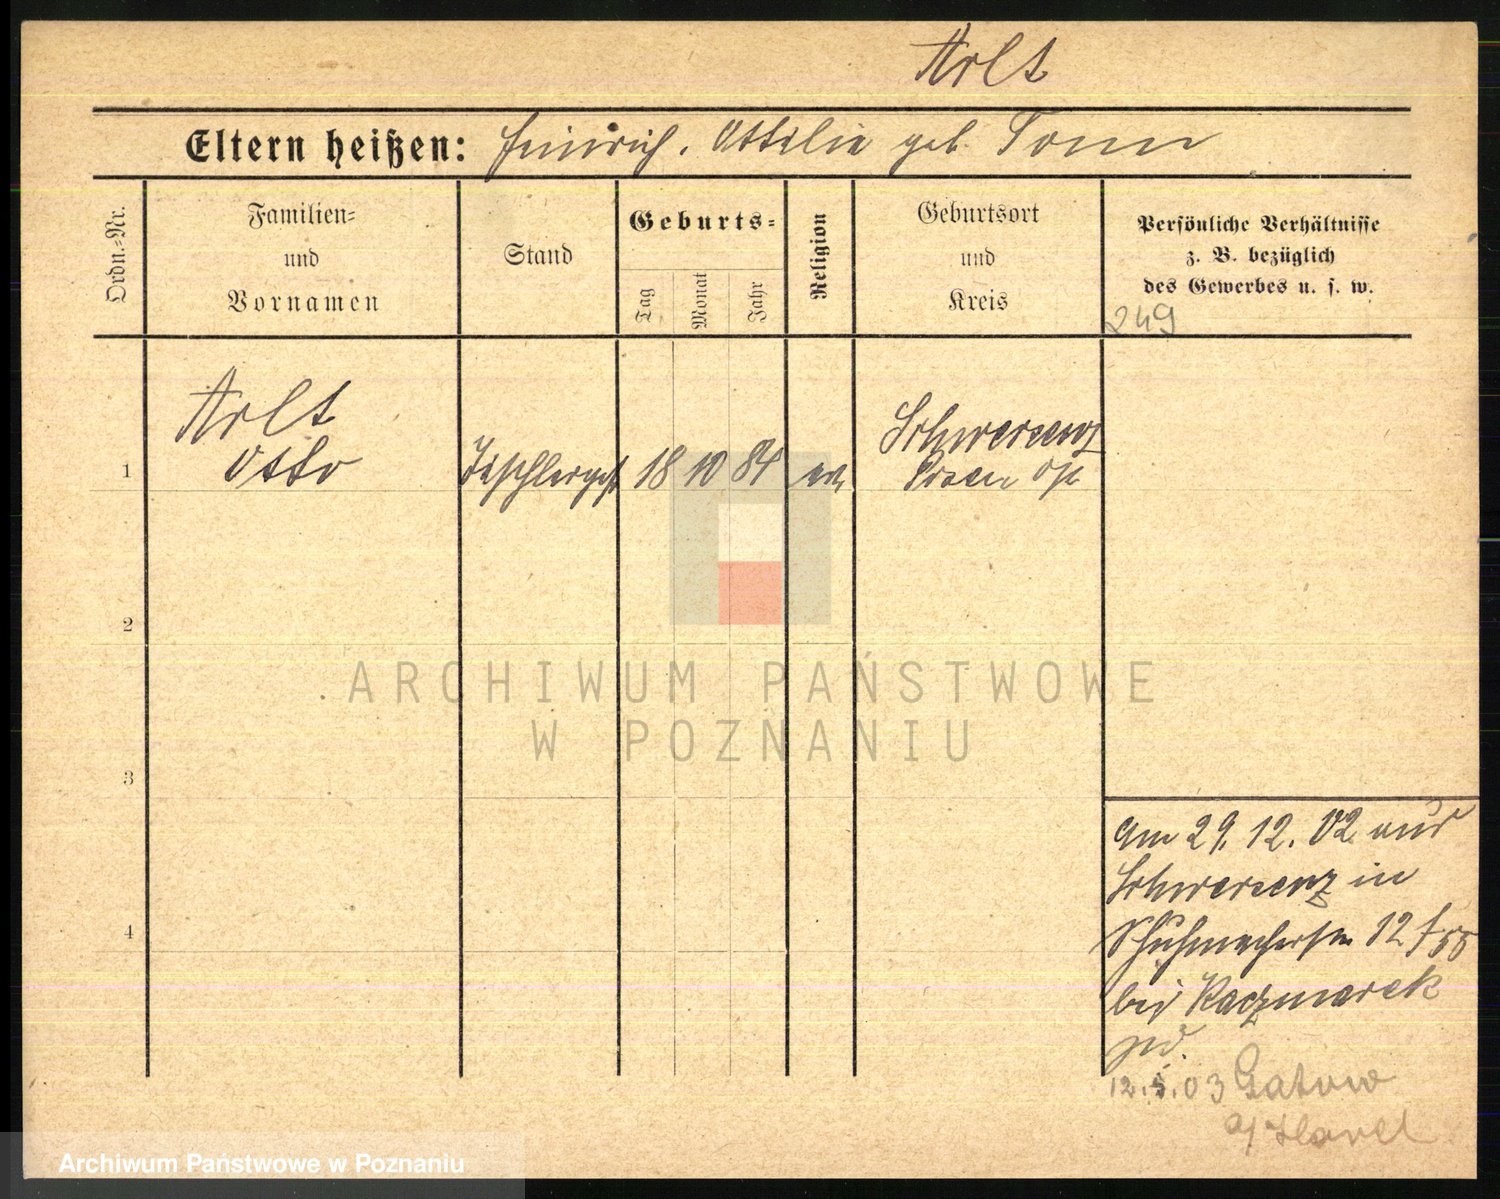 Arlt
Eltern heißen: Heinrich, Ottilie geb. Tonn
Ordn.=Nr.
Familien=
und
Vornamen
Stand
Geburts=
Tag
Monat
Jahr
Religion
Geburtsort
und
Kreis
Persönliche Verhältnisse
z. B. bezüglich
des Gewerbes u. s. w.
249
1
Arlt
Otto
Tischlerges
18 10 84
ev.
Schwersenz
Posen Ost
2
3
4
ARCHIWUM PAŃSTWOWE
W POZNANIU
am 29. 12. 02 aus
Schwersenz in
Schuhmacherstr 12
bei Kaczmarek
12. 5. 03 Gatow
a/Havel
Archiwum Państwowe w Poznaniu